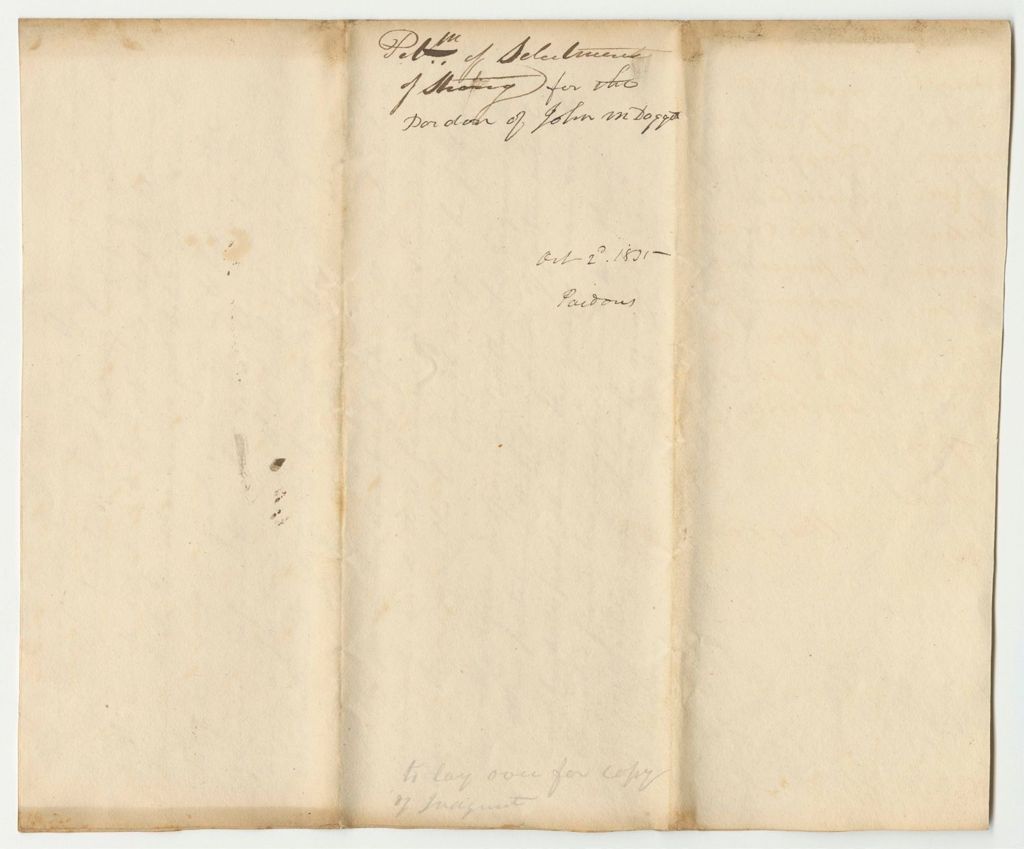 Pet.n of Selectmen
of Strong for the
Pardon of John M Daggett
Oct 2d. 1835
Pardons
to lay over for copy
of Judgment